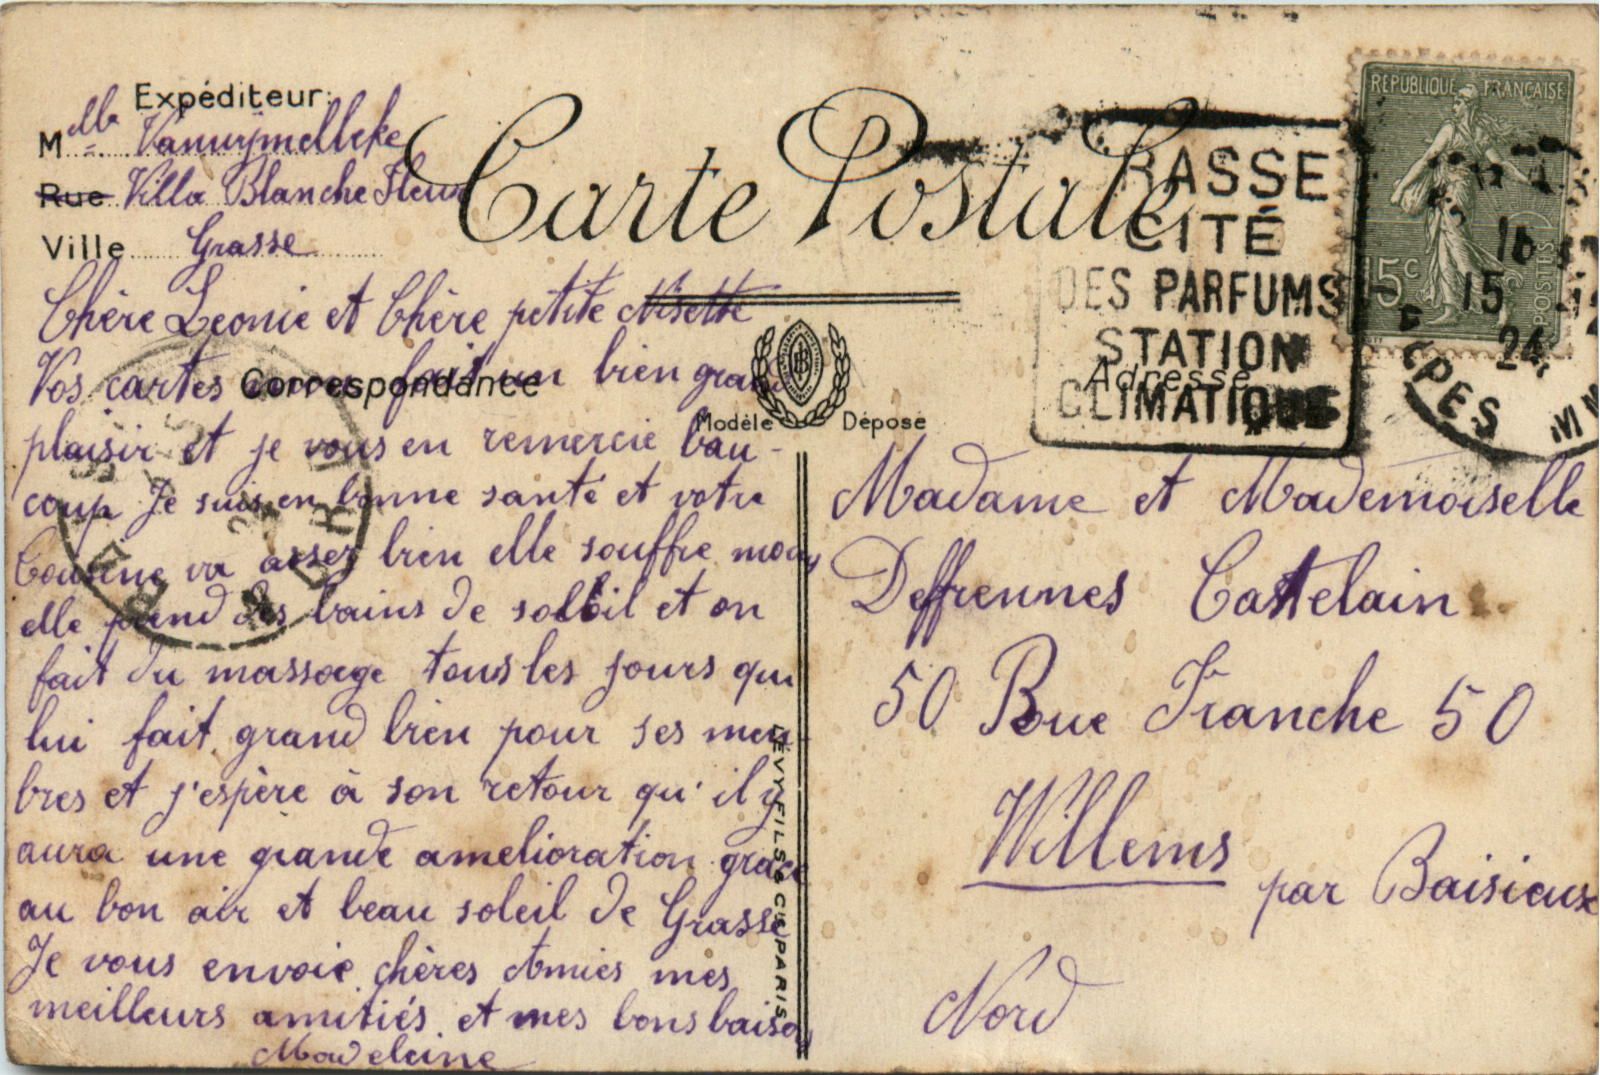 Expéditeur:
Melle Vanwymelbeke
Rue Villa Blanche Fleur
Ville Grasse
Carte Postale
Chère Leonie et Chère petite Nisette
Vos cartes fait un bien grand
Correspondance
plaisir et je vous en remercie beau-
coup Je suis en bonne santé et votre
Cousine va assez bien elle souffre moins
elle prend des bains de soleil et on
fait du massage tous les jours qui
lui fait grand bien pour ses mem-
bres et j'espère à son retour qu'il y
aura une grande amelioration grace
au bon air et beau soleil de Grasse
Je vous envoie chères Amies mes
meilleurs amitiés et mes bons baisers
Madeleine
Modèle Déposé
LEVY FILS & CIE PARIS
RASSE
CITÉ
DES PARFUMS
STATION
CLIMATIQUE
REPUBLIQUE FRANÇAISE
15c
POSTES
15
24
ALPES MM
Adresse
Madame et Mademoiselle
Deffrennes Castelain
50 Rue Franche 50
Willems
par Baisieux
Nord